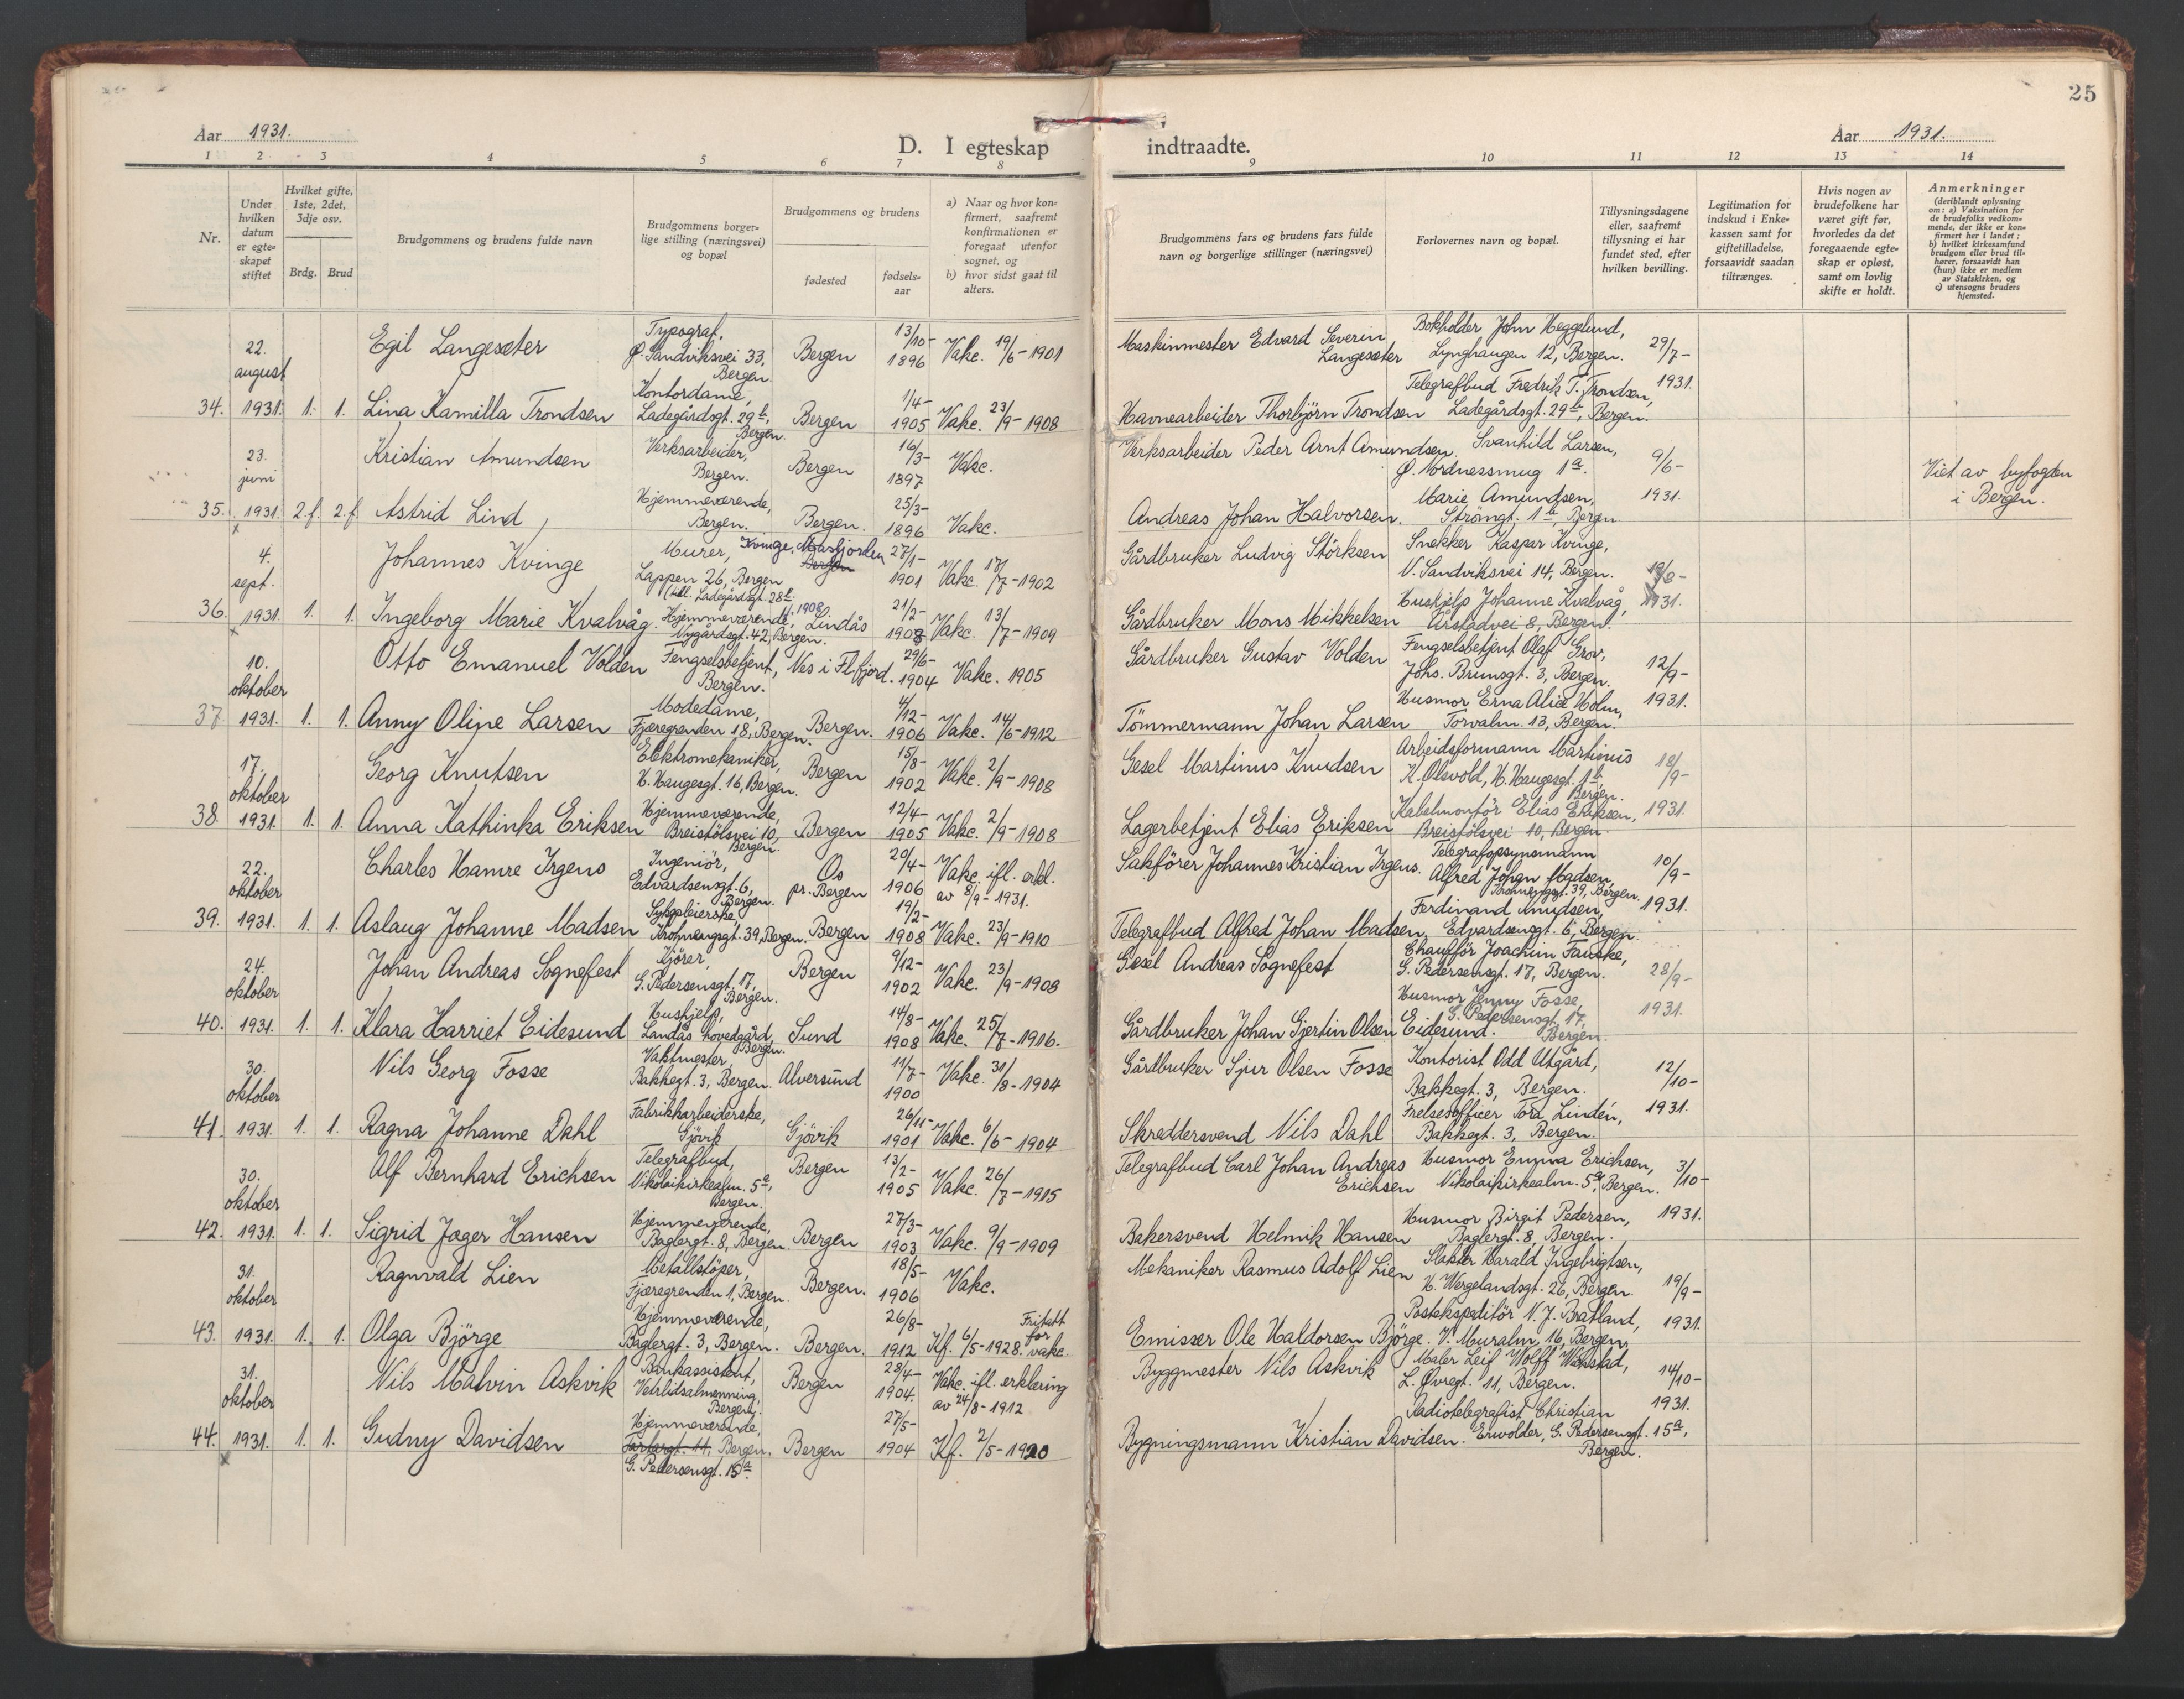 25
Aar 1931.
D. I egteskap indtraadte.
Aar 1931.
1 2 3 4 5 6 7 8 9 10 11 12 13 14
Nr.
Under hvilken datum er egte-skapet stiftet
Hvilket gifte, 1ste, 2det, 3dje osv.
Brdg. Brud
Brudgommens og brudens fulde navn
Brudgommens borger-lige stilling (næringsvei) og bopæl
Brudgommens og brudens
fødested
fødsels-aar
a) Naar og hvor kon-firmert, saafremt konfirmationen er foregaat utenfor sognet, og
b) hvor sidst gaat til alters.
Brudgommens fars og brudens fars fulde navn og borgerlige stillinger (næringsvei)
Forlovernes navn og bopæl.
Tillysningsdagene eller, saafremt tillysning ei har fundet sted, efter hvilken bevilling.
Legitimation for indskud i Enke-kassen samt for giftetilladelse, forsaavidt saadan tiltrænges.
Hvis nogen av brudefolkene har været gift før, hvorledes da det foregaaende egte-skap er opløst, samt om lovlig skifte er holdt.
Anmerkninger (deriblandt oplysning om: a) Vaksination for de brudefolks vedkom-mende, der ikke er kon-firmert her i landet; b) hvilket kirkesamfund brudgom eller brud til-hører, forsaavidt han (hun) ikke er medlem av Statskirken, og c) utensogns bruders hjemsted.
34. 22. august 1931. 1. 1.
Egil Langesæter Typograf, Ø. Sandviksvei 33, Bergen. Bergen 13/10-1896 Vakc. 19/6-1901 Maskinmester Edvard Severin Langesæter Bokholder John Heggelund, Lynghaugen 12, Bergen. 29/7-1931.
Lina Kamilla Trondsen Kontordame, Ladegårdsgt. 29b, Bergen. Bergen 1/4-1905 Vakc. 23/9-1908 Havnearbeider Thorbjörn Trondsen Telegrafbud Fredrik T. Trondsen, Ladegårdsgt. 29b, Bergen.
35. 23. juni 1931 2.f. 2.f.
Kristian Amundsen Verksarbeider, Bergen. Bergen 16/3-1897 Vakc. Verksarbeider Peder Arnt Amundsen. Svanhild Larsen, Ø. Nordnessmug 1a. 9/6-1931. Viet av byfogden i Bergen.
Astrid Lind Hjemmeværende, Bergen. Bergen. 25/3-1896 Vakc. Andreas Johan Halvorsen. Marie Amundsen, Strangt. 1b, Bergen
36. 4. sept. 1931 1. 1.
Johannes Kvinge Murer, Lappen 26, Bergen Ladegårdsgt. 28b. Kvinge, Masfjorden Bergen 27/1-1901 Vakc. 17/7-1902 Gårdbruker Ludvig Störksen Snekker Kaspar Kvinge, N. Sandviksvei 14, Bergen. 19/8-1931.
Ingeborg Marie Kvalvåg. Hjemmeværende, Nygårdsgt. 42, Bergen. Lindås 1908 21/2-1908 Vakc. 13/7-1909 Gårdbruker Mons Mikkelsen Hushjelp Johanne Kvalvåg, Årstadvei 8, Bergen.
37. 10. oktober 1931. 1. 1.
Otto Emanuel Volden Fengselsbetjent, Bergen. Nes i Fl.fjord. 29/6-1904 Vakc. 1905 Gårdbruker Gustav Volden Fengselsbetjent Olaf Grov, Johs. Brunsgt. 3, Bergen. 12/9-1931.
Anny Oline Larsen Modedame, Fjæregrenden 18, Bergen. Bergen. 4/12-1906 Vakc. 14/6-1912 Tömmermann Johan Larsen Husmor Erna Alice Holm, Torvalm. 13, Bergen.
38. 17. oktober 1931. 1. 1.
Georg Knutsen Elektromekaniker, H. Haugesgt. 16, Bergen. Bergen 15/8-1902 Vakc. 2/9-1908 Gesel Martinus Knudsen Arbeidsformann Martinus K. Olsvold, H. Haugesgt. 1b, Bergen. 18/9-1931.
Anna Kathinka Eriksen Hjemmeværende, Breistölsvei 10, Bergen. Bergen 12/4-1905 Vakc. 2/9-1908 Lagerbetjent Elias Eriksen Kabelmontör Elias Eriksen, Breistölsvei 10, Bergen.
39. 22. oktober 1931. 1. 1.
Charles Hamre Irgens Ingeniör, Edvardsensgt. 6, Bergen. Os pr. Bergen 20/4-1906 Vakc. ifl. erkl. av 8/9-1931. Sakförer Johannes Kristian Irgens. Telegrafopsynsmann Alfred Johan Madsen, Krohnengsgt. 39, Bergen. 10/9-1931.
Aslaug Johanne Madsen Sykepleierske Krohnengsgt. 39, Bergen. Bergen 19/2-1908 Vakc. 23/9-1910 Telegrafbud Alfred Johan Madsen, Ferdinand Knudsen, Edvardsensgt. 6, Bergen.
40. 24. oktober 1931. 1. 1.
Johan Andreas Sognefest Kjörer, G. Pedersensgt. 17, Bergen. Bergen 9/12-1902 Vakc. 23/9-1908 Gesel Andreas Sognefest Chaufför Joachim Fauske, G. Pedersensgt. 17, Bergen. 28/9-1931.
Klara Harriet Eidesund Hushjelp, Landås hovedgård, Bergen. Sund 14/8-1908 Vakc. 25/7-1916. Gårdbruker Johan Gjertin Olsen Eidesund. Husmor Jenny Fosse, G. Pedersensgt. 17, Bergen.
41. 30. oktober 1931. 1. 1.
Nils Georg Fosse Vaktmester Bakkegt. 3, Bergen. Alversund 11/7-1900 Vakc. 31/8-1904 Gårdbruker Sjur Olsen Fosse Kontorist Odd Utgård, Bakkegt. 3, Bergen. 12/10-1931.
Ragna Johanne Dahl Fabrikkarbeiderske, Gjövik Gjövik 26/11-1901 Vakc. 6/6-1904 Skreddersvend Nils Dahl Frelsesofficer Tora Lindén, Bakkegt. 3, Bergen.
42. 30. oktober 1931. 1. 1.
Alf Bernhard Erichsen Telegrafbud, Nikolaikirkealm. 5a, Bergen. Bergen 13/2-1905 Vakc. 26/7-1915 Telegrafbud Carl Johan Andreas Erichsen Husmor Emma Erichsen, Nikolaikirkealm. 5a, Bergen. 3/10-1931.
Sigrid Jæger Hansen Hjemmeværende, Baglergt. 8, Bergen. Bergen 27/3-1903 Vakc. 9/9-1909 Bakersvend Helmik Hansen Husmor Birgit Pedersen, Baglergt. 8, Bergen.
43. 31. oktober 1931. 1. 1.
Ragnvald Lien Metallstöper, Fjæregrenden 1, Bergen. Bergen. 18/5-1906 Vakc. Mekaniker Rasmus Adolf Lien Slakter Harald Ingebrigtsen, H. Wergelandsgt. 26, Bergen. 19/9-1931.
Olga Björge Hjemmeværende, Baglergt. 3, Bergen. Bergen. 26/8-1912 Kf. 6/5-1928. Fritatt for vakc. Emissær Ole Haldorsen Björge. Postekspeditör N. J. Bratland, V. Muralm. 16, Bergen.
44. 31. oktober 1931. 1. 1.
Nils Malvin Askvik Bankassistent, Vetrlidsalmenning, Bergen. Bergen 28/4-1904. Vakc. ifl. erklæring av 24/8-1912 Byggmester Nils Askvik Maler Leif Wolff L. Øvregt. 11, Bergen. 14/10-1931.
Gudny Davidsen Hjemmeværende, Bergen. G. Pedersensgt. 15a. Bergen 27/5-1904 Kf. 2/5-1920 Bygningsmann Kristian Davidsen. Radiotelegrafist Christian Erwolder, G. Pedersensgt. 15a, Bergen.